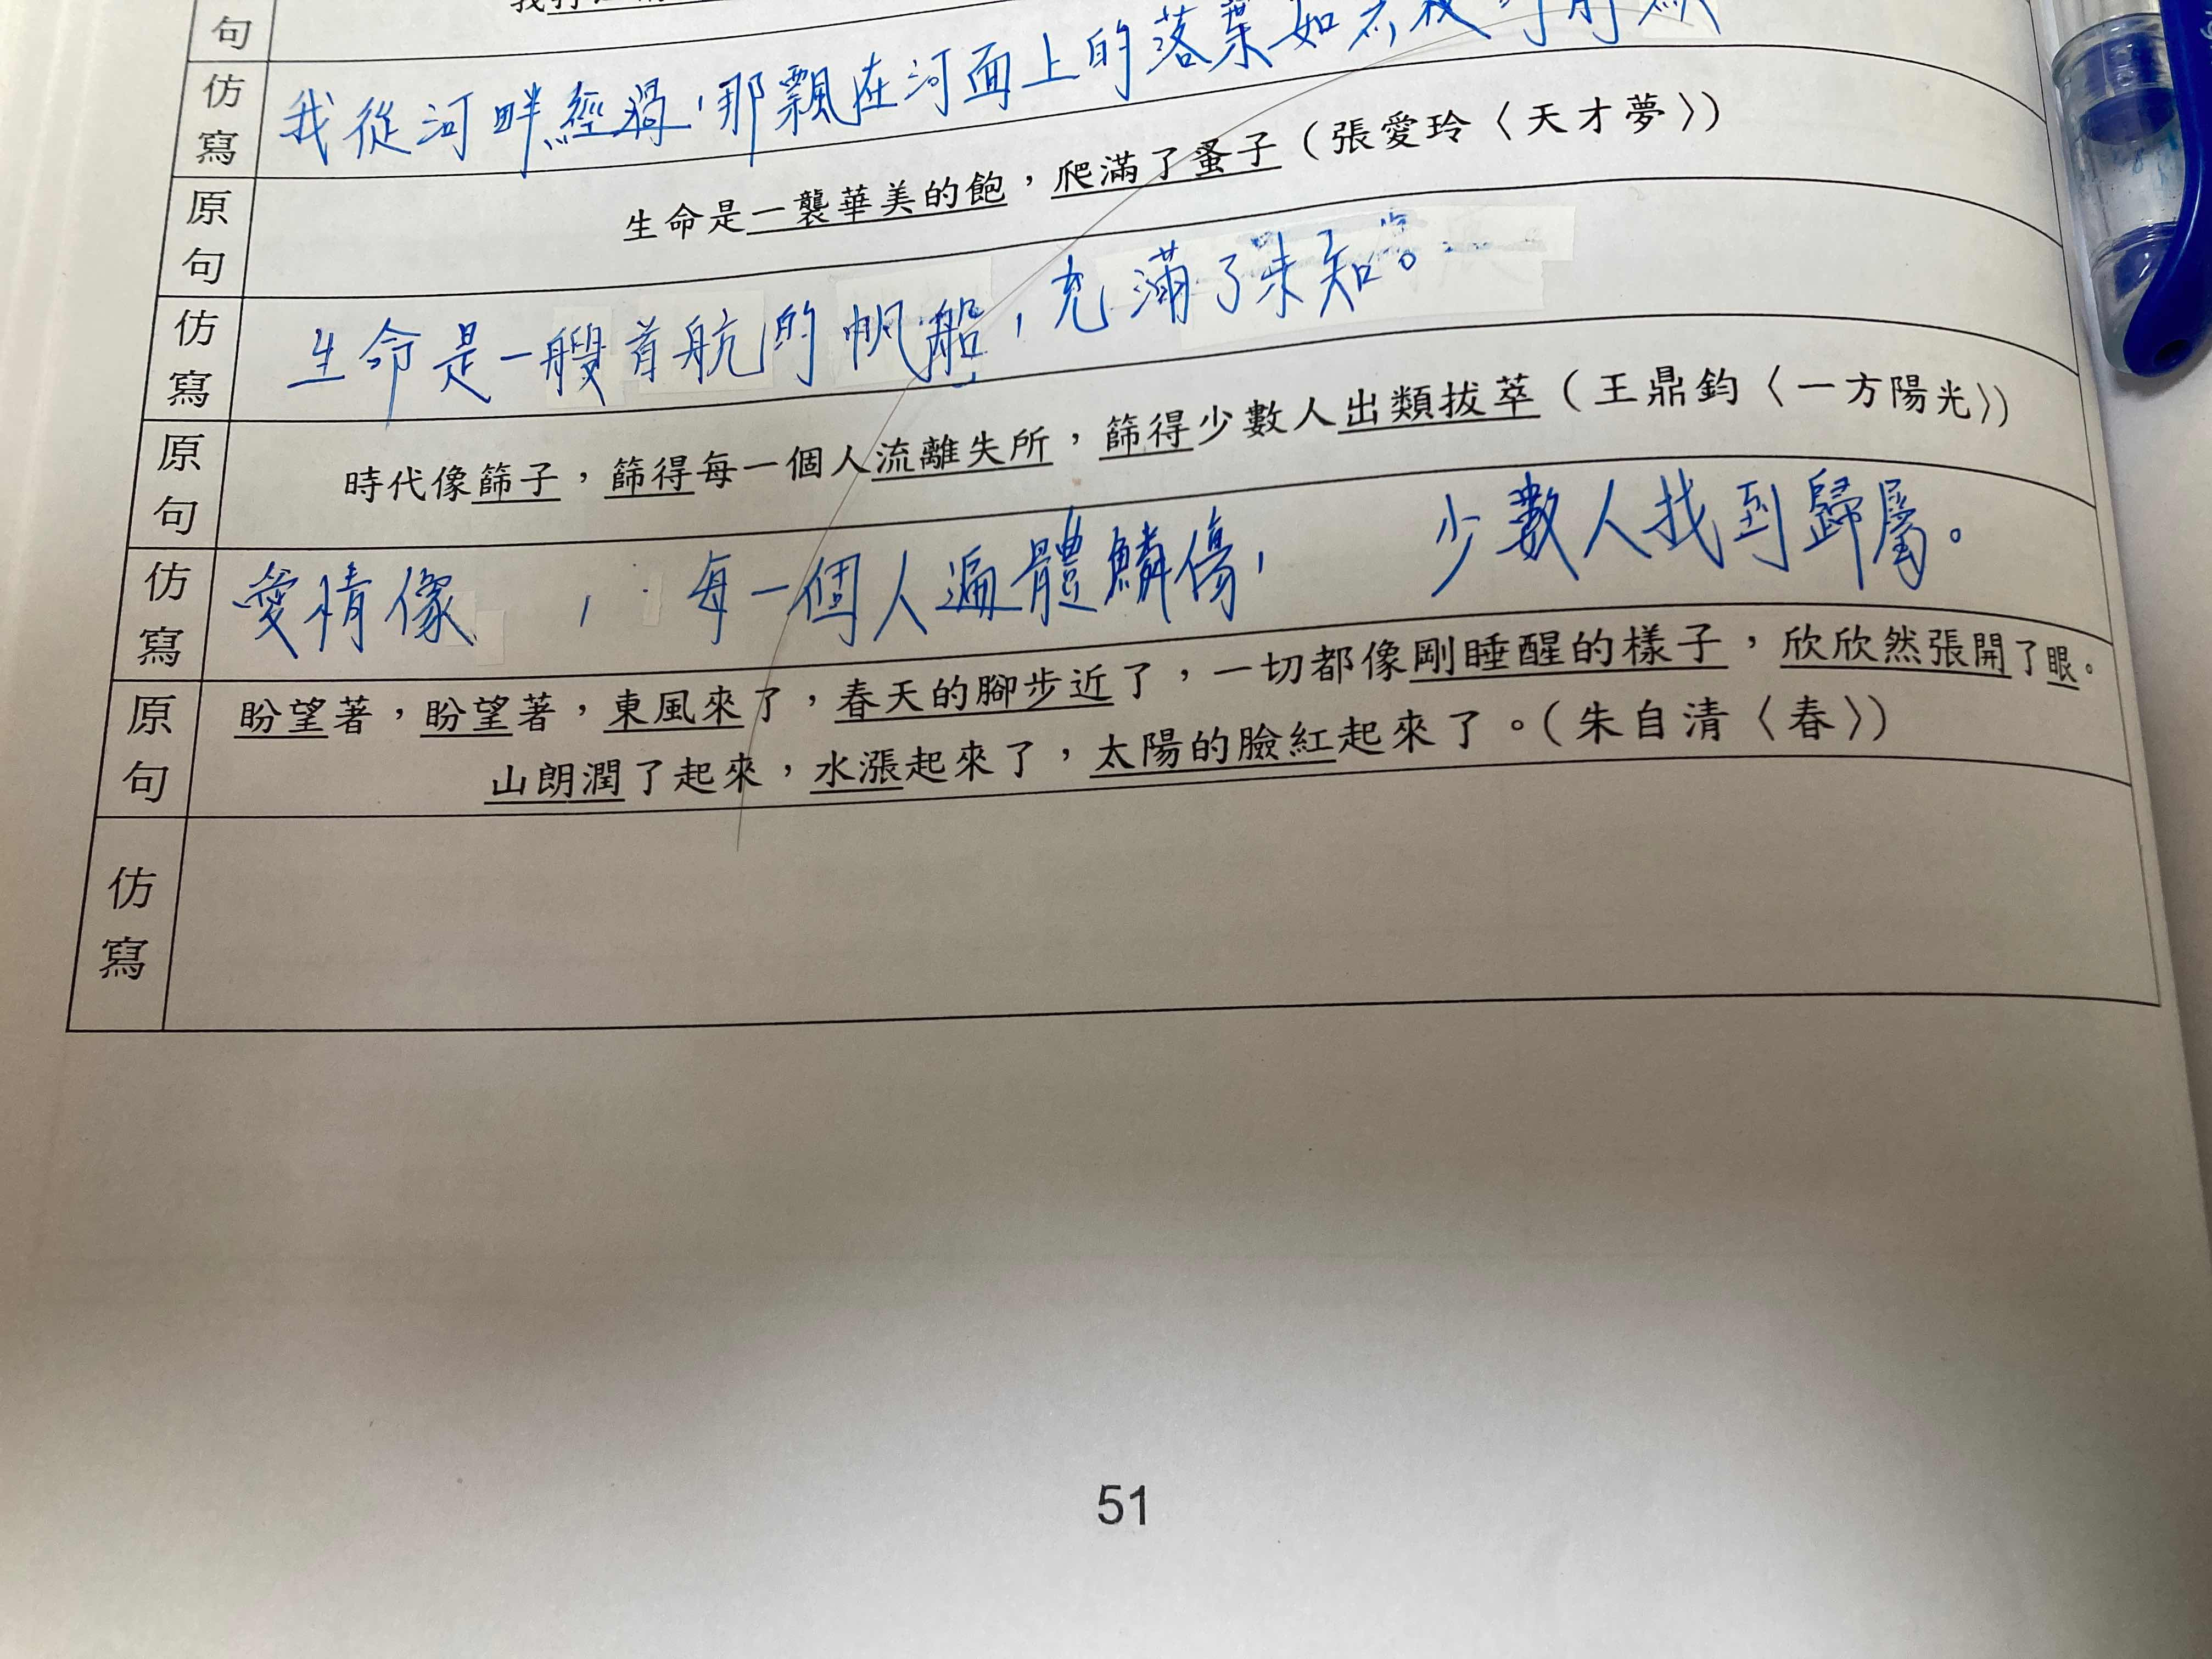 句
仿寫
我從河畔經過，那飄在河面上的落葉如
原句
生命是一襲華美的飽，爬滿了蚤子（張愛玲〈天才夢〉）
仿寫
生命是一艘首航的帆船，充滿了未知。
原句
時代像篩子，篩得每一個人流離失所，篩得少數人出類拔萃（王鼎鈞〈一方陽光〉）
仿寫
愛情像　　，　　每一個人遍體鱗傷，　　少數人找到歸屬。
原句
盼望著，盼望著，東風來了，春天的腳步近了，一切都像剛睡醒的樣子，欣欣然張開了眼。
山朗潤了起來，水漲起來了，太陽的臉紅起來了。（朱自清〈春〉）
仿寫
51